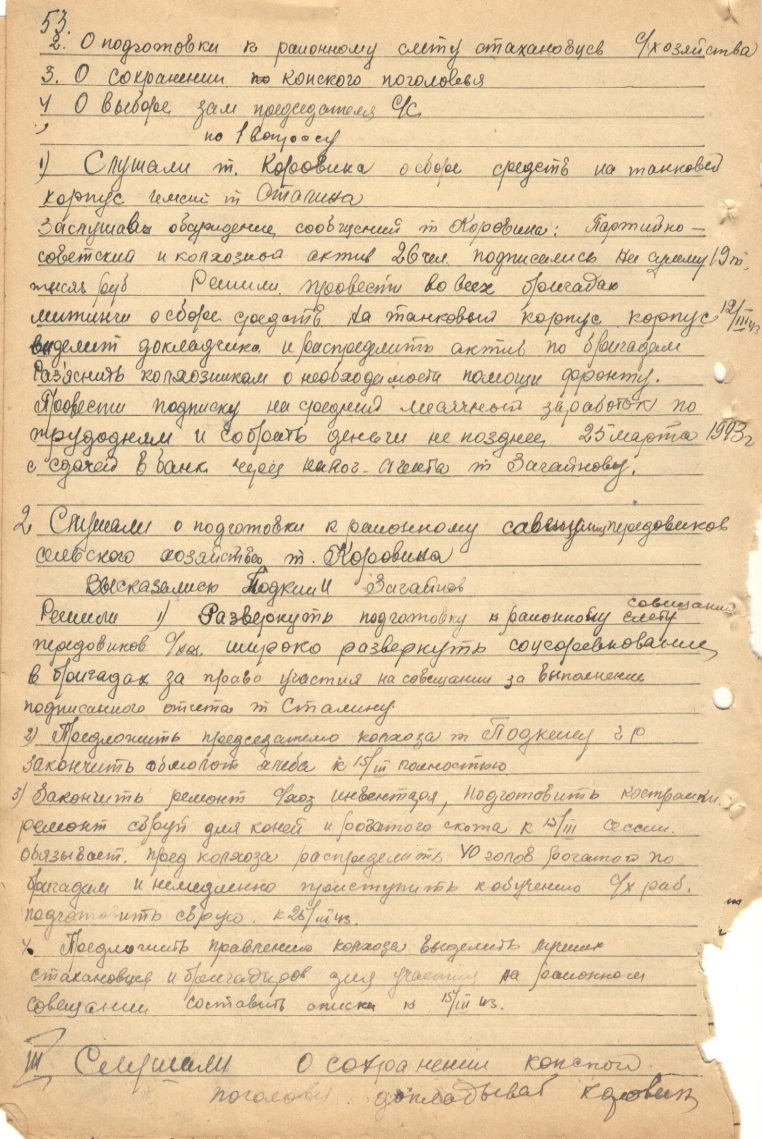 53.
2. О подготовки к районному слету стахановцев с/хозяйства
3. О сохранении конского поголовья
4 О выборе зам председателя с/с
по 1 вопросу
1) Слушали т. Коровина о сборе средств на танковой
корпус имени т Сталина
Заслушавы обсуждение сообщений т Коровина: Партийно-
советский и колхозной актив 26 чел. подписались на сумму 19 т.
тысяч руб Решили провести во всех бригадах
митинги о сборе средств на танковый корпус корпус 12/III 43
выделит докладчика и распределить актив по бригадам
Раз'яснить колхозникам о необходимости помощи фронту.
Провести подписку на средний месячной заработок по
трудодням и собрать деньги не позднее 25 марта 1943 г
с сдачей в банк через налог-агента т Загайнову.
2 Слушали о подготовки к районному совещ передовиков
сельского хозяйство т. Коровина
Высказались Подкин и Загайнов
совещанию
Решили 1) Развернуть подготовку к районному слету
передовиков с/хоз широко развернуть соцсоревнование
в бригадах за право участия на совещании за выполнение
подписанного отчета т Сталину
2) Предложить председателю колхоза т Подкину
закончить обмолот хлеба к 15/III полностью
3) Закончить ремонт с/хоз инвентаря, подготовить
ремонт сбруй для коней и рогатого скота к 15/III сессии.
обязывает. пред колхоза распределить 40 голов рогатого по
бригадам и немедленно приступить к обучению с/х раб.
подготовить сбрую. к 25/III 43.
4. Предложить правлению колхоза выделить лучших
стахановцев и бригадиров для участия на районном
совещании составить списки к 15/III 43.
III Слушали О сохранении конского
поголовья докладывал Коровин